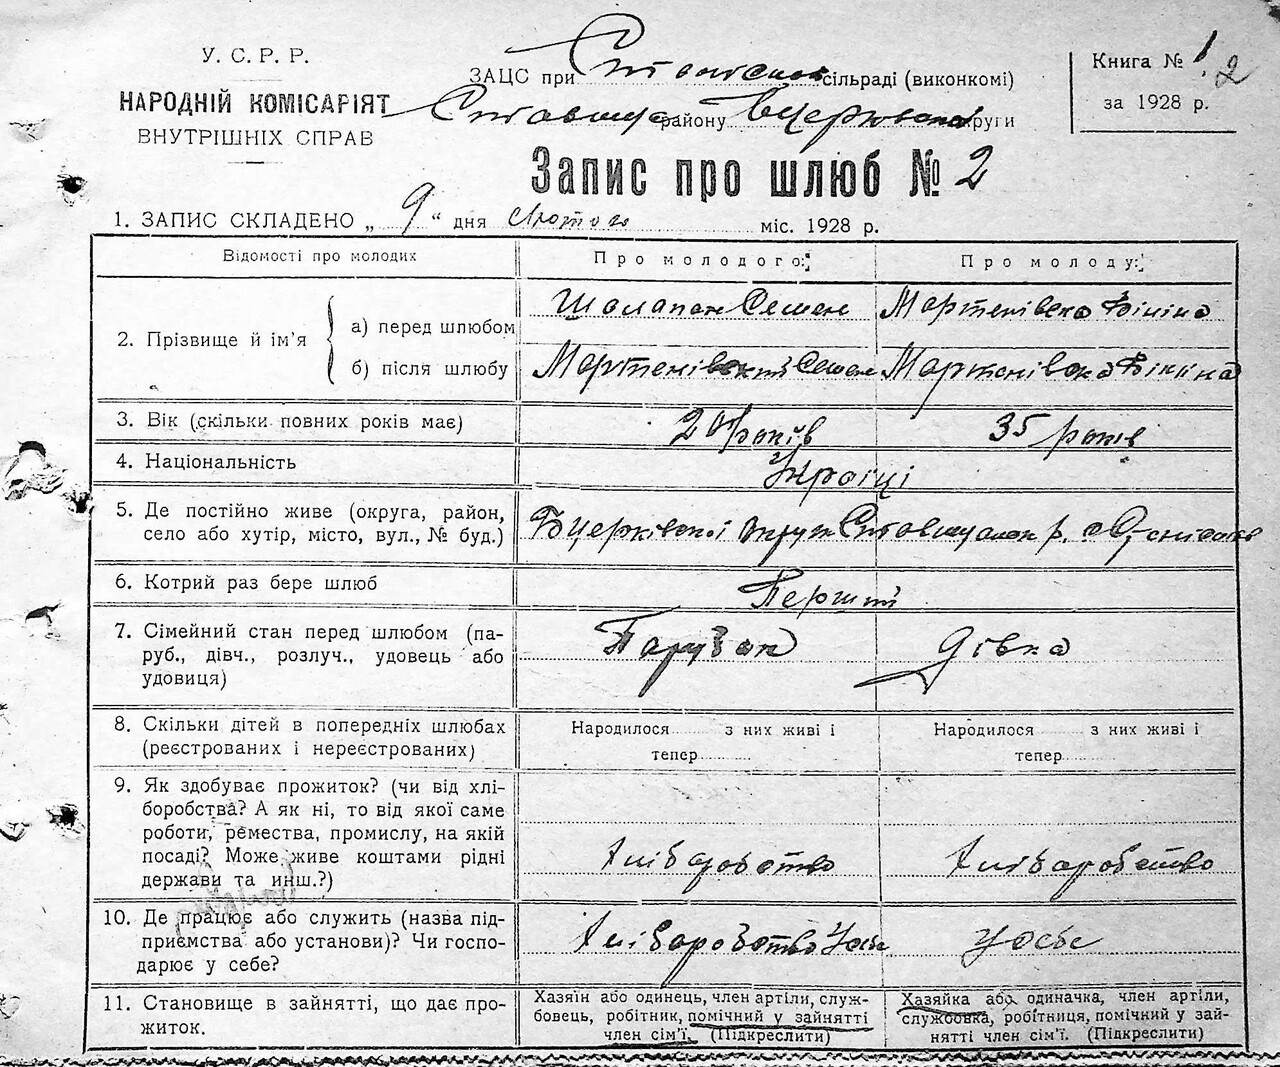 У. С. Р. Р.
НАРОДНІЙ КОМІСАРІЯТ
ВНУТРІШНІХ СПРАВ
ЗАЦС при сільраді (виконкомі)
району округи
Книга № 1
2
за 1928 р.
Запис про шлюб № 2
1. ЗАПИС СКЛАДЕНО „ 9 “ дня Лютого міс. 1928 р.
Відомості про молодих
Про молодого:
Про молоду:
2. Прізвище й ім'я
а) перед шлюбом
Шалапан Семен
Мортенівска
б) після шлюбу
Мортенівский Семен
Мортенівска
3. Вік (скільки повних років має)
20 років
35 років
4. Національність
Украінці
5. Де постійно живе (округа, район,
село або хутір, місто, вул., № буд.)
Бцерківскоі округи р. с
6. Котрий раз бере шлюб
Перший
7. Сімейний стан перед шлюбом (па-
руб., дівч., розлуч., удовець або
удовиця)
Парубок
Дівка
8. Скільки дітей в попередніх шлюбах
(реєстрованих і нереєстрованих)
Народилося з них живі і
тепер
Народилося з них живі і
тепер
9. Як здобуває прожиток? (чи від хлі-
боробства? А як ні, то від якої саме
роботи, ремества, промислу, на якій
посаді? Може живе коштами рідні
держави та инш.?)
Хліборобство
Хліборобство
10. Де працює або служить (назва під-
приємства або установи)? Чи госпо-
дарює у себе?
Хліборобство у себе
у себе
11. Становище в зайнятті, що дає про-
житок.
Хазяїн або одинець, член артілі, служ-
бовець, робітник, помічний у зайнятті
член сім'ї. (Підкреслити)
Хазяйка або одиначка, член артілі,
службовка, робітниця, помічний у зай-
нятті член сім'ї. (Підкреслити)